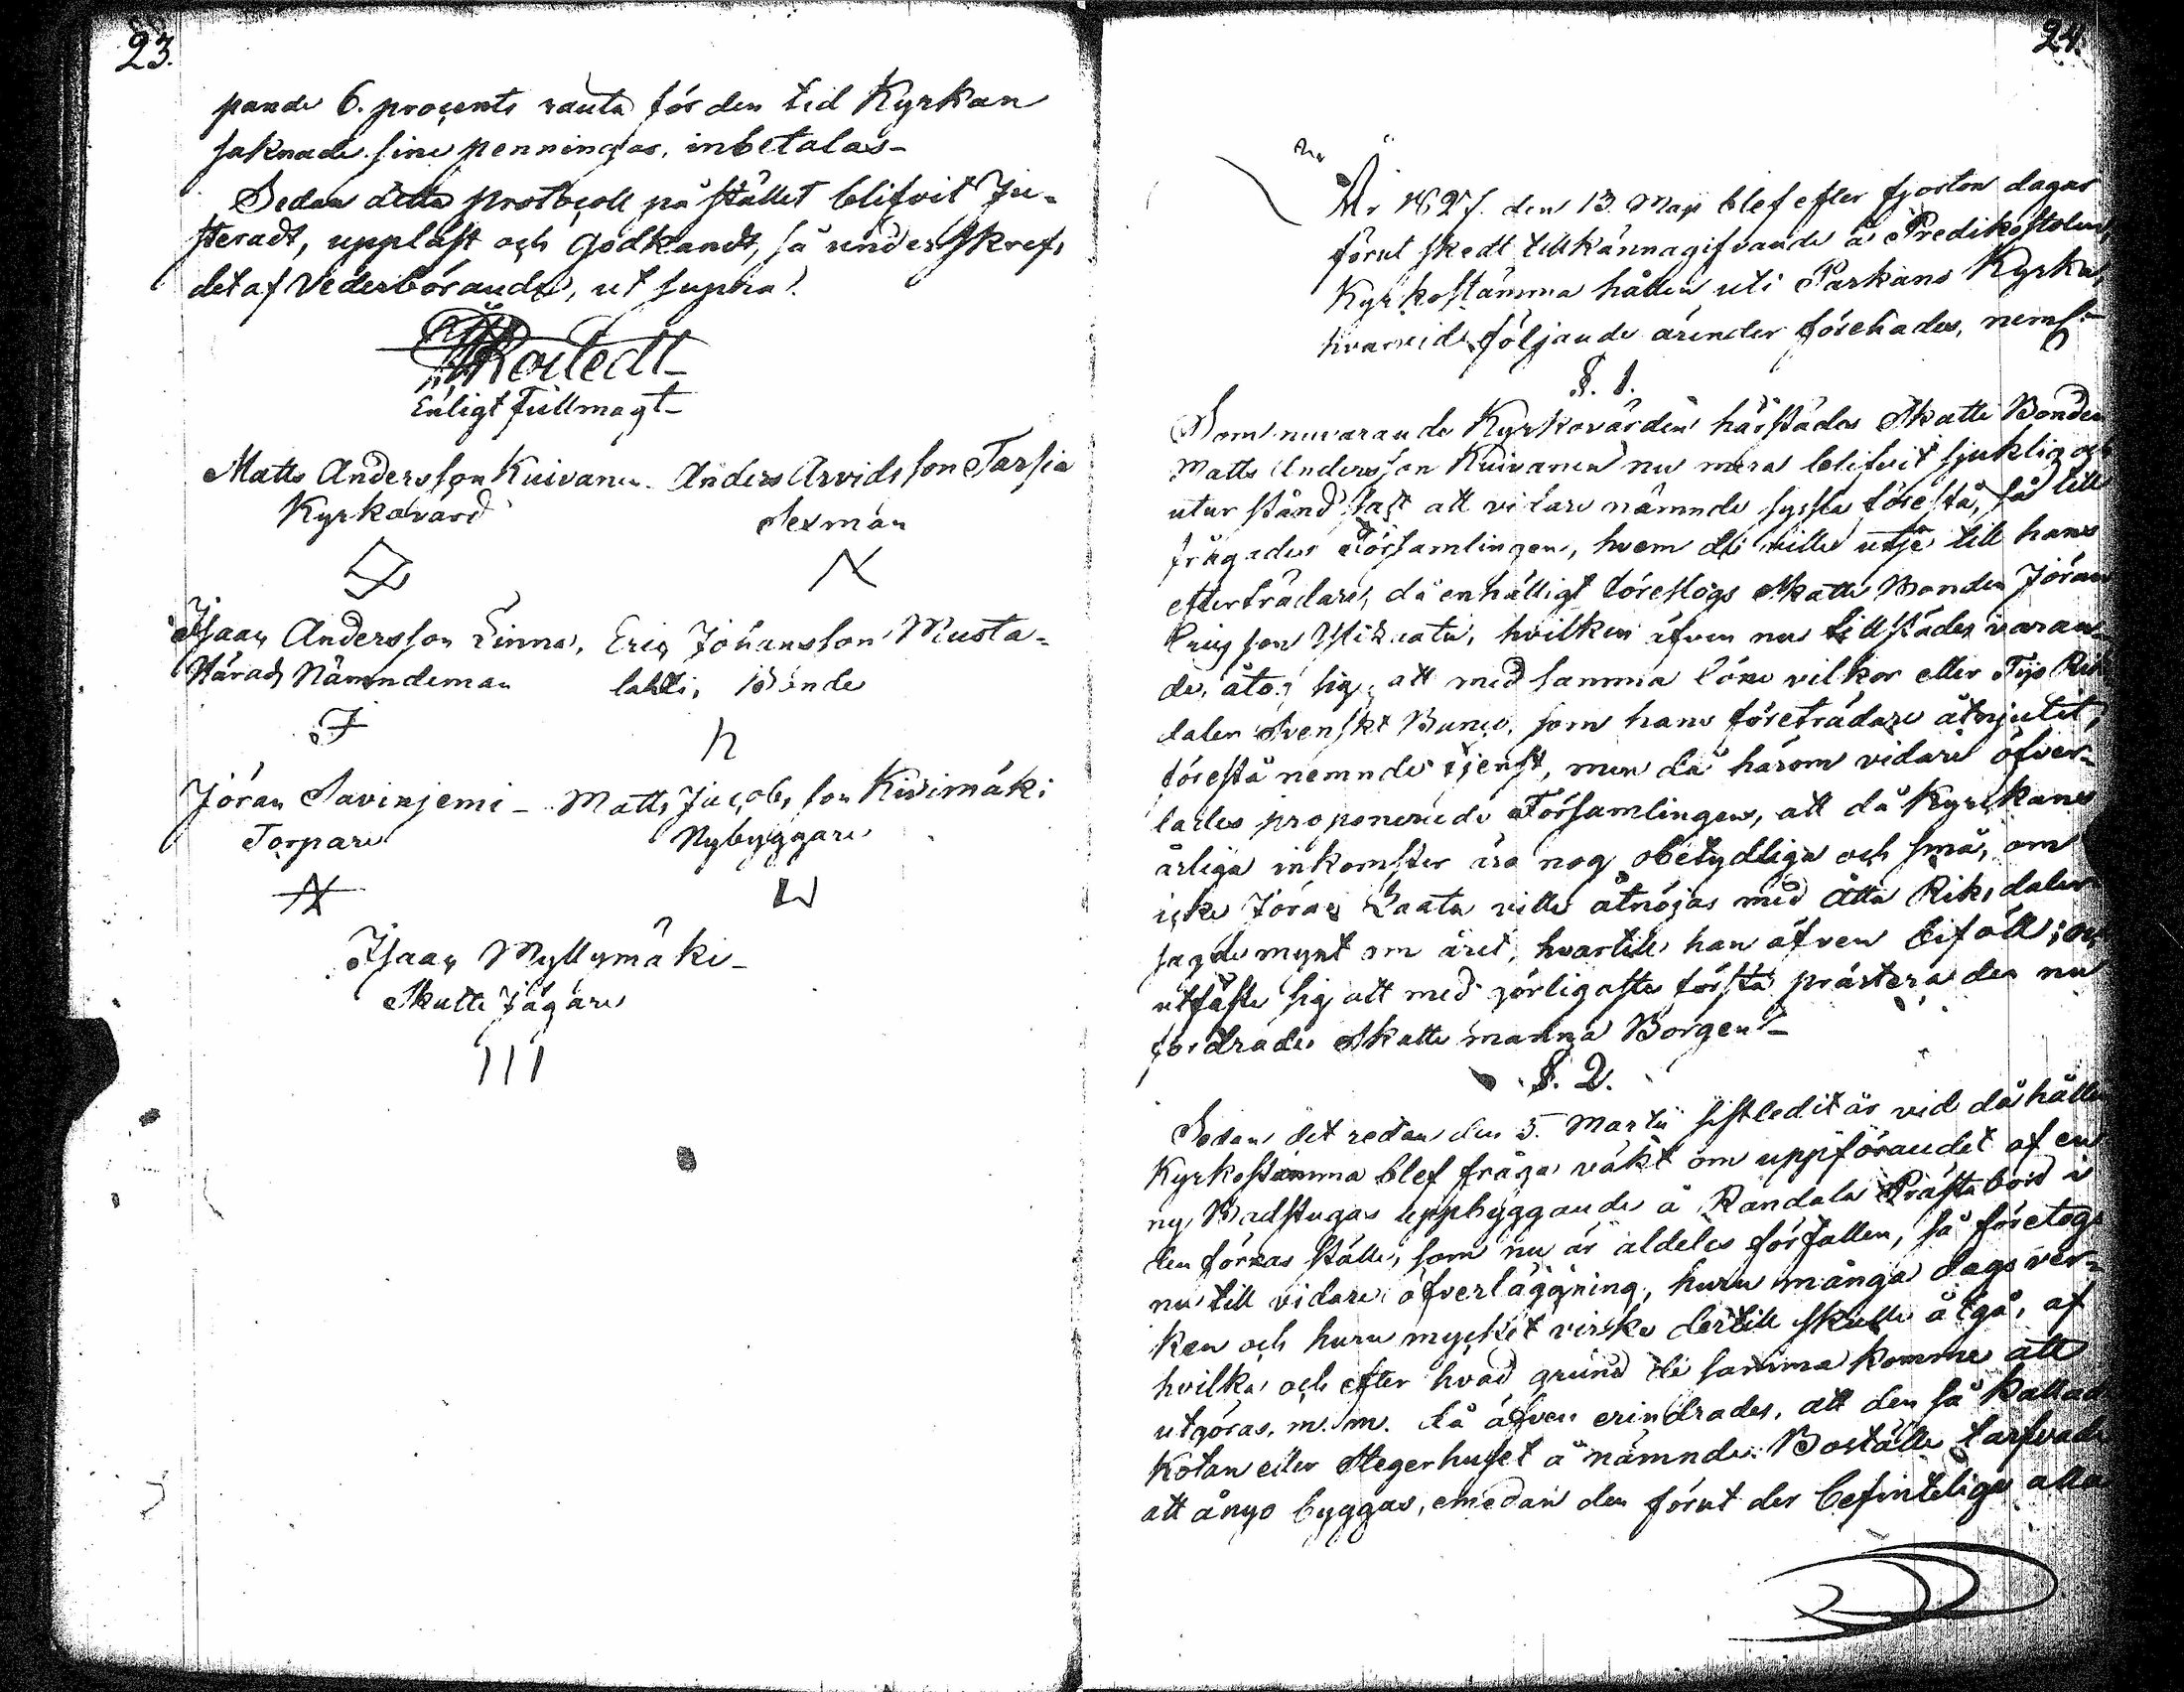 23.
pande 6. procents ränta för den tid Kyrkan
saknade sine penningar, inbetalas_
Sedan detta protocoll på stället blifvit Ju=
steradt, uppläst och Godkändt, så underskrefs
det af Vederbörande, ut supra.
Enligt Fullmagt_
Matts Andersson Kuivanen. Anders Arvidsson Tarsia
Kyrkovärd Sexman
Isaac Andersson Linna, Eric Johansson Musta=
Härads Nämndeman lahti, Bonde
Jöran Savinjemi_ Matts Jacobsson Kivimäki
Torpare Nybyggare
Isaac Myllymäki_
Skatte Jägare
III
24.
År 1827. den 13. Maji blef efter fjorton dagar
förut skedt tillkännagifvande å Predikostolen,
Kyrkostämma hållen uti Parkano Kyrka,
hvarvid följande ärender förehades, neml:
§. 1.
Som nuvarande Kyrkovärden härstädes Skatte Bonden
Matts Andersson Kuivanen nu mera blifvit sjuklig och
utur stånd satt att vidare nämnde syssla förestå, så till
frågades Församlingen, hvem de ville utse till hans
efterträdare, då enhälligt föreslogs Skatte Bonden Jöran
Ericsson, hvilken äfven nu tillstädes varan=
de, åtog sig, att med samma löne vilkor eller Tijo Riks
daler Svenskt Banco, som hans företrädare åtnjutit,
förestå nemnde tjenst, men då härom vidare öfver=
lades proponerade Församlingen, att då Kyrkans
årliga inkomster äro nog obetydliga och små, om
icke Jöran ville åtnöjas med Åtta Riksdaler
sagde mynt om året, hvartill han äfven biföll; och
utfäste sig att med görligaste första prästera den nu
fordrade Skatte manna Borgen_
§. 2.
Sedan det redan den 5. Martii sistledit år vid då hållen
Kyrkostämma blef fråga väkt om uppförandet af en
ny Badstugas uppbyggande å Randala Prästa bord i
den förras ställe, som nu är aldeles förfallen, så företogs
nu till vidare öfverläggning, huru många dagsver=
ken och huru mycket virke dertill skulle åtgå, af
hvilka och efter hvad grund de samma komme att
utgöras, m. m. då äfven erindrades, att den så kallad
Kotan eller Stegerhuset å nämnde Boställe tarfvade
att ånyo byggas, emedan den förut der befintelige